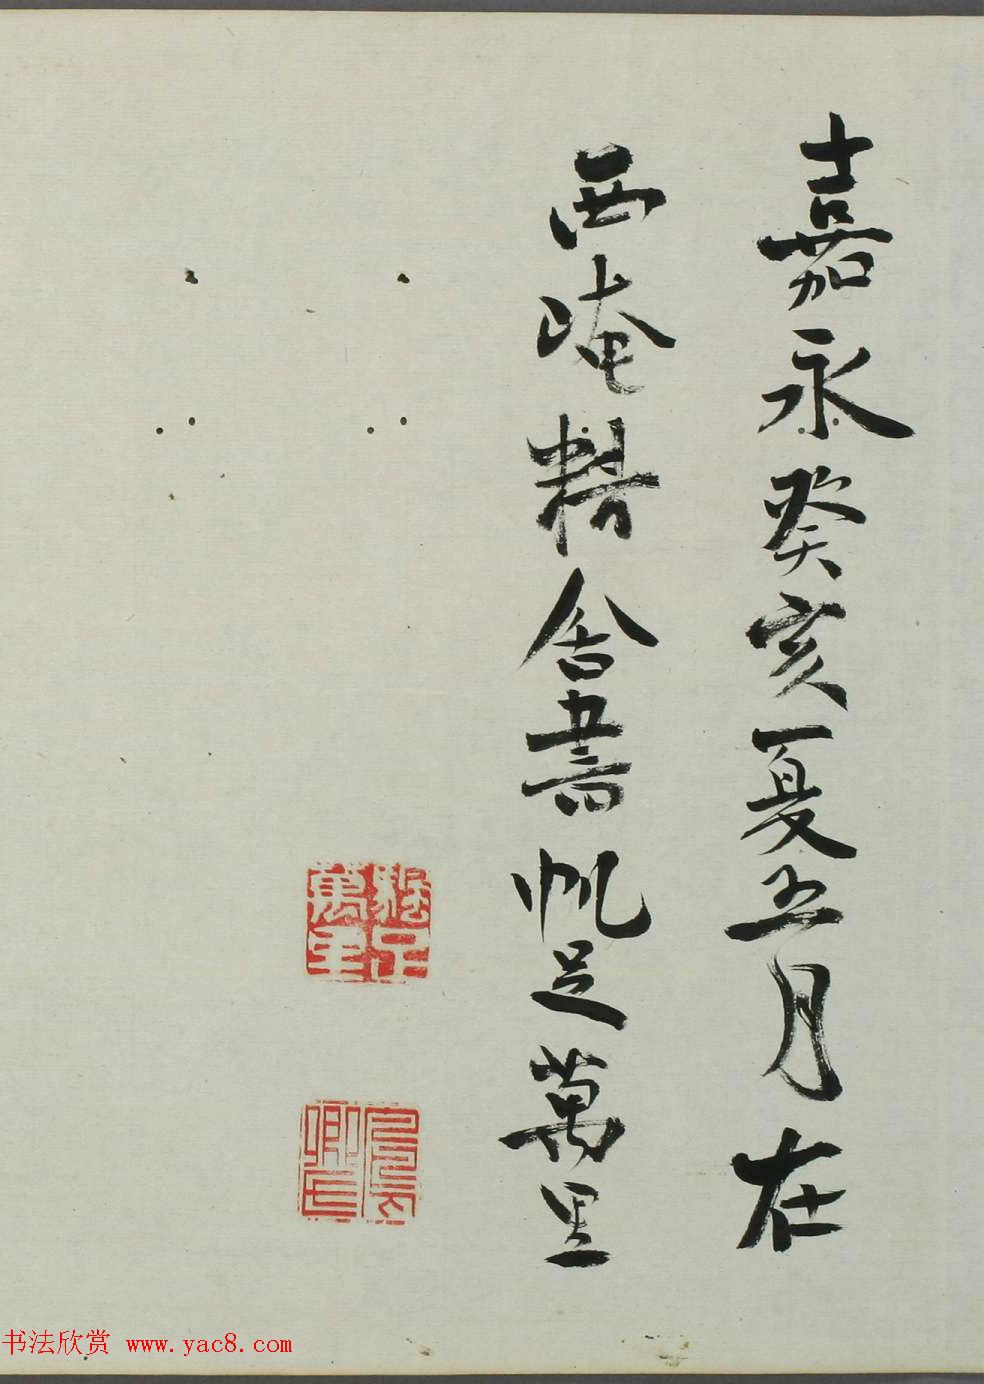 嘉永癸亥夏五月在
西崦精舍書帆足萬里
颿足萬里
书法欣赏 www.yac8.com